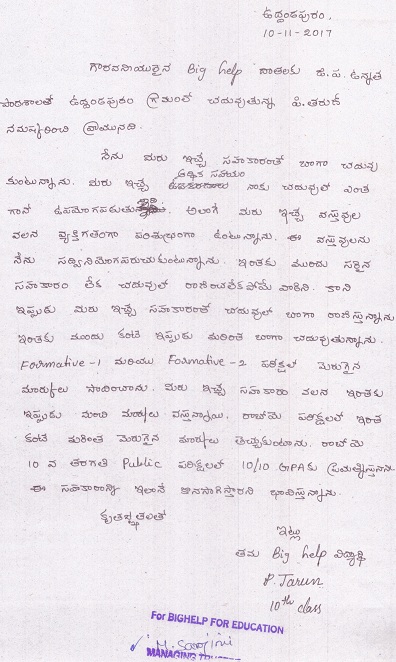 ఉద్దండపురం,
10-11-2017
గౌరవనీయులైన Big help దాతలకు జి.ప. ఉన్నత
పాఠశాలలో ఉద్దండపురం గ్రామంలో చదువుతున్న పి.తరుణ్
నమస్కరించి వ్రాయునది.
నేను మీరు ఇచ్చే సహకారంతో బాగా చదువు
ఆర్థిక సహాయం
కుంటున్నాను. మీరు ఇచ్చే నాకు చదువులో ఎంత
గానో ఉపయోగపడుతుంది. అలాగే మీరు ఇచ్చే వస్తువుల
వలన వ్యక్తిగతంగా పరిశుభ్రంగా ఉంటున్నాను. ఈ వస్తువులను
నేను సద్వినియోగపరుచుకుంటున్నాను. ఇంతకు ముందు సరైన
సహకారం లేక చదువులో రాణించలేకపోయే వాడిని. కాని
ఇప్పుడు మీరు ఇచ్చే సహకారంతో చదువులో బాగా రాణిస్తున్నాను
ఇంతకు ముందు కంటే ఇప్పుడు మరింత బాగా చదువుతున్నాను.
Formative-1 మరియు Formative-2 పరీక్షల్లో మెరుగైన
మార్కులు సాధించాను. మీరు ఇచ్చే సహకారం వలన ఇంతకు
ఇప్పుడు మంచి మార్కులు వస్తున్నాయి. రాబోయే పరీక్షలలో ఇంత
కంటే మరింత మెరుగైన మార్కులు తెచ్చుకుంటాను. రాబోయే
10 వ తరగతి Public పరీక్షలలో 10/10 GPAకు ప్రయత్నిస్తానను
ఈ సహకారాన్ని ఇలానే కొనసాగిస్తారని భావిస్తున్నాను.
కృతజ్ఞతలతో
ఇట్లు
తమ Big help విద్యార్థి
P. Tarun
10th class
For BIGHELP FOR EDUCATION
MANAGING